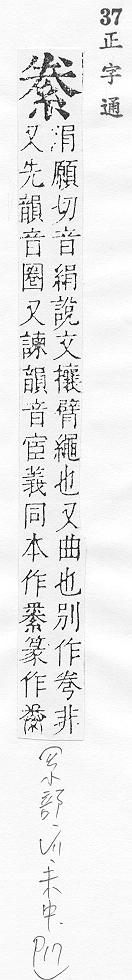 37
正字通
絭
涓願切音絹說文攘臂繩也又曲也別作弮非
又先韻音圈又諫韻音宦義同本作絭篆作
糸部
未中
P17